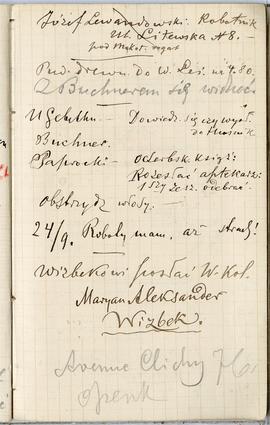 Józef Lewandowski. Robotnik
Ul. Litewska № 8. –
pod Mokot. rogat
Pud. drewn. do W. Leś. na 4.80.
Z Buchnerem się widzieć
U Gebethn. – Dowiedz. się czy wysł.
do tłosnik
Buchner.
Paprocki – Oderbsk. książ:
Rozesłać aptekarz:
zesz. odebrać.
Obstrydz włosy. –
24/9. Roboty mam, aż strach!
Wizbekowi posłać W. Kol.
Maryan Aleksander
Wizbek.
Avenue Clichy